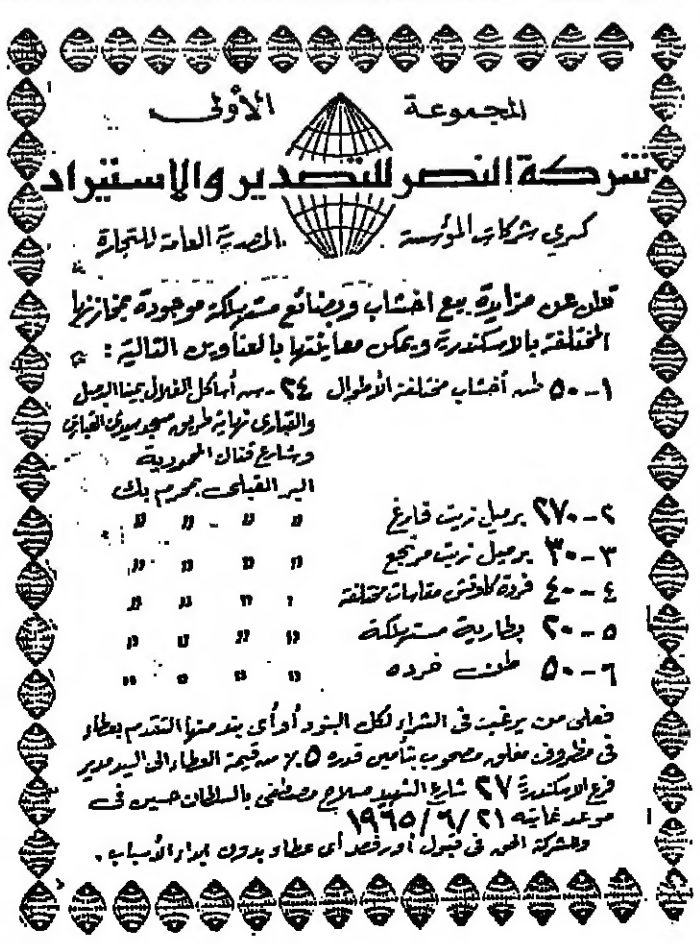 المجموعة الأولى
شركة النصر للتصدير والاستيراد
كبرى شركات المؤسسة المصرية العامة للتجارة
تعلن عن مزايدة بيع اخشاب وبضائع مستهلكة موجودة بمخازنها
المختلفة بالاسكندرية ويمكن معاينتها بالعناوين التالية :
١ - ٥٠ طن أخشاب مختلفة الأطوال ٢٤ - أساكل الغلال بمينا البصل
والقبارى نهاية طريق مسجد سيدى القبارى
وشارع قنال المحمودية
البر القبلى بمحرم بك
٢ - ٢٧٠ برميل زيت فارغ " " " "
٣ - ٣٠ برميل زيت مرتجع " " " "
٤ - ٤٠ فردة كاوتش مقاسات مختلفة " " " "
٥ - ٢٠ بطارية مستهلكة " " " "
٦ - ٥٠ طن خرده " " " "
فعلى من يرغب فى الشراء لكل البنود أو أى بند منها التقدم بعطاء
فى مظروف مغلق مصحوب بتأمين قدره ٥٪ من قيمة العطاء الى السيد مدير
فرع الاسكندرية ٢٧ شارع الشهيد صلاح مصطفى بالسلطان حسين فى
موعد غايته ٢١ / ٦ / ١٩٦٥
وللشركة الحق فى قبول أو رفض أى عطاء بدون ابداء الأسباب .